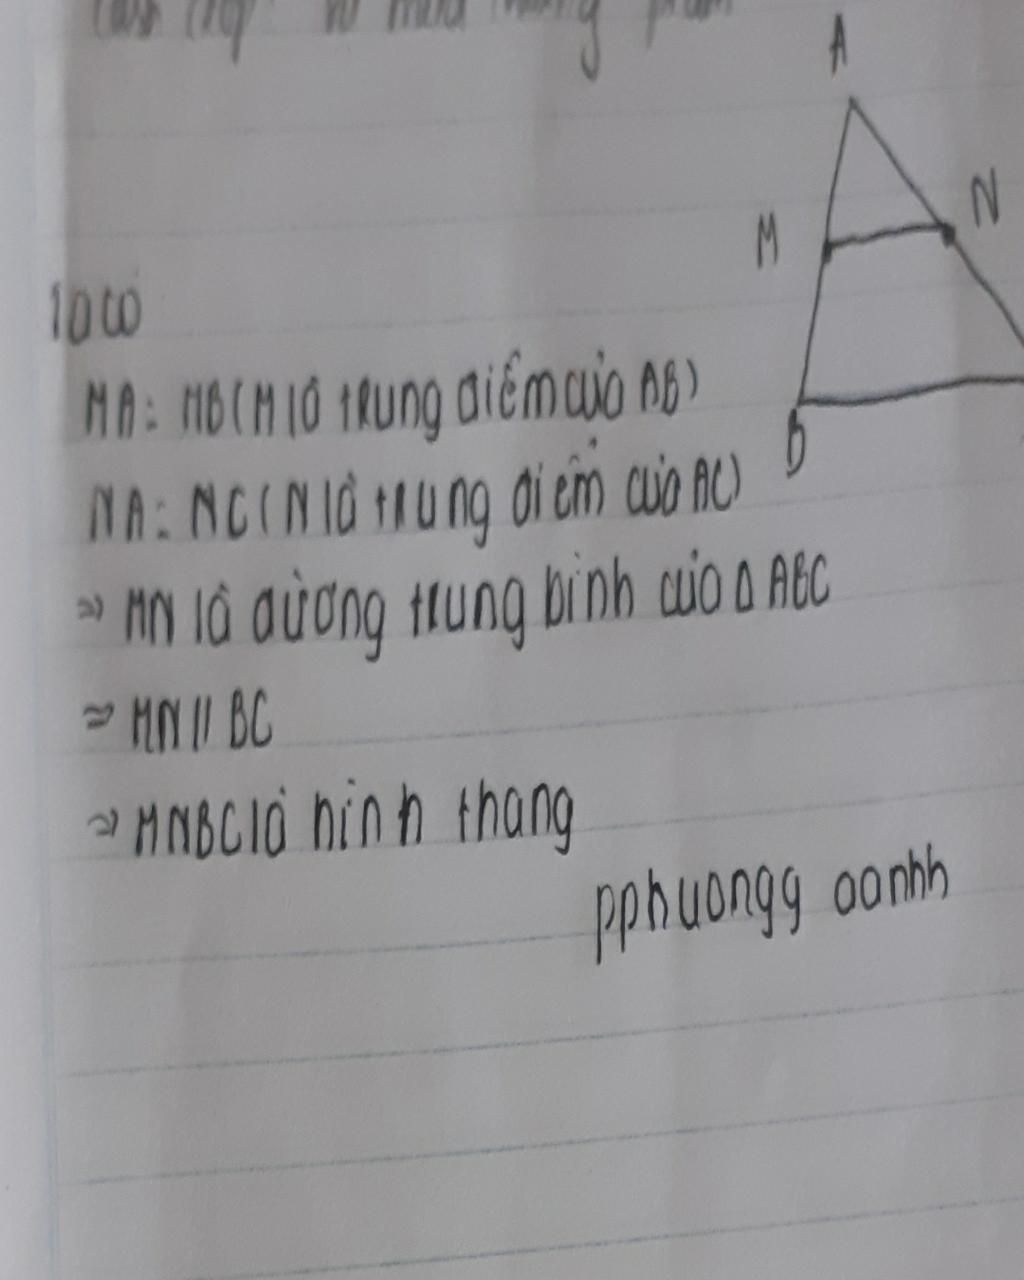 Ta có
MA = MB (M là trung điểm của AB)
NA = NC (N là trung điểm của AC)
=> MN là đường trung bình của Δ ABC
=> MN // BC
=> MNBC là hình thang
pphuongg oanhh
A
M
N
B